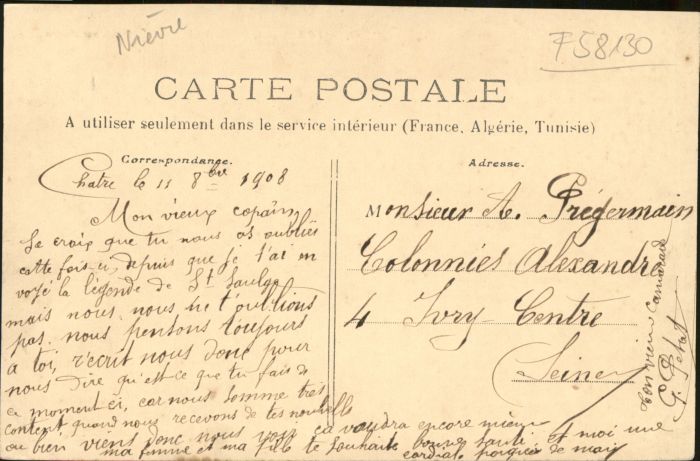 Nièvre
F58130
CARTE POSTALE
A utiliser seulement dans le service intérieur (France, Algérie, Tunisie)
Correspondance.
Chatre le 11 8bre 1908
Mon vieux copain
Je crois que tu nous as oubliés
cette fois-ci, depuis que je t'ai en
voyé la légende de St Saulge
mais nous, nous ne t'oublions
pas, nous pensons toujours
a toi, r'ecrit nous donc pour
nous dire qu'est-ce que tu fais de
ce moment ci, car nous somme très
content quand nous recevons de tes nouvelle
ou bien viens donc nous voir ça vaudra encore mieux
ma femme et ma fille te souhaite bonne santé et moi une
cordiale poignée de main
Adresse.
Monsieur A. Prégermain
Colonnies Alexandre
4 Ivry-Centre
Seine
ton vieux camarade
G.